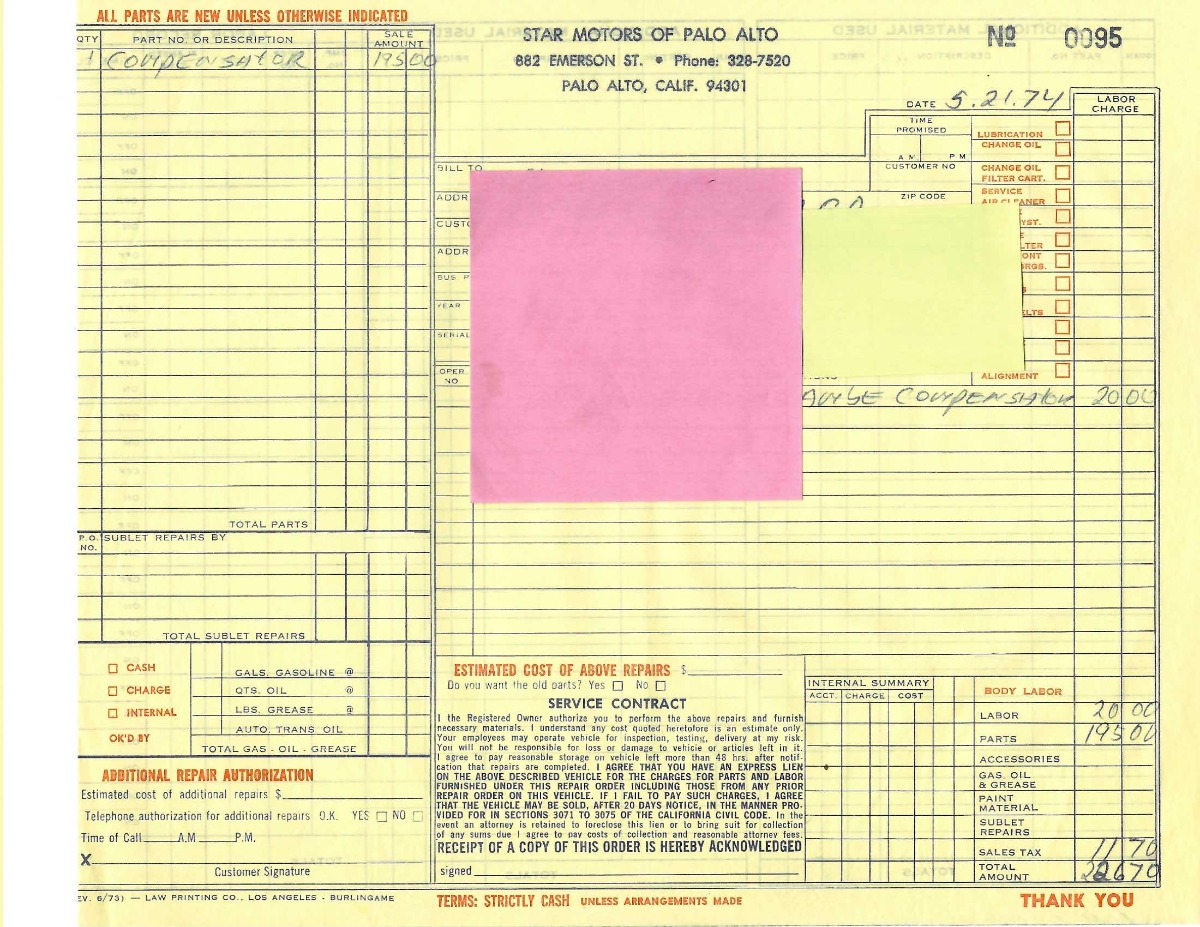 ALL PARTS ARE NEW UNLESS OTHERWISE INDICATED
QTY PART NO. OR DESCRIPTION SALE AMOUNT
1 COMPENSATOR 195 00
TOTAL PARTS
P.O. NO. SUBLET REPAIRS BY
TOTAL SUBLET REPAIRS
CASH
CHARGE
INTERNAL
OK'D BY
GALS. GASOLINE @
QTS. OIL @
LBS. GREASE @
AUTO. TRANS OIL
TOTAL GAS - OIL - GREASE
ADDITIONAL REPAIR AUTHORIZATION
Estimated cost of additional repairs $
Telephone authorization for additional repairs O.K. YES NO
Time of Call A.M P.M.
X
Customer Signature
EV. 6/73) — LAW PRINTING CO., LOS ANGELES - BURLINGAME
STAR MOTORS OF PALO ALTO
882 EMERSON ST. • Phone: 328-7520
PALO ALTO, CALIF. 94301
Nº 0095
DATE 5.21.74
LABOR CHARGE
TIME PROMISED
A M P M
CUSTOMER NO
ZIP CODE
LUBRICATION
CHANGE OIL
CHANGE OIL FILTER CART.
SERVICE AIR CLEANER
YST.
LTER
ONT
BRGS.
ELTS
ALIGNMENT
BILL TO
ADDR
CUST
ADDR
BUS. P
YEAR
SERIAL
OPER. NO
COMPENSATOR 20 00
ESTIMATED COST OF ABOVE REPAIRS $
Do you want the old parts? Yes No
SERVICE CONTRACT
I the Registered Owner authorize you to perform the above repairs and furnish
necessary materials. I understand any cost quoted heretofore is an estimate only.
Your employees may operate vehicle for inspection, testing, delivery at my risk.
You will not be responsible for loss or damage to vehicle or articles left in it.
I agree to pay reasonable storage on vehicle left more than 48 hrs. after notif-
cation that repairs are completed. I AGREE THAT YOU HAVE AN EXPRESS LIEN
ON THE ABOVE DESCRIBED VEHICLE FOR THE CHARGES FOR PARTS AND LABOR
FURNISHED UNDER THIS REPAIR ORDER INCLUDING THOSE FROM ANY PRIOR
REPAIR ORDER ON THIS VEHICLE. IF I FAIL TO PAY SUCH CHARGES, I AGREE
THAT THE VEHICLE MAY BE SOLD, AFTER 20 DAYS NOTICE, IN THE MANNER PRO-
VIDED FOR IN SECTIONS 3071 TO 3075 OF THE CALIFORNIA CIVIL CODE. In the
event an attorney is retained to foreclose this lien or to bring suit for collection
of any sums due I agree to pay costs of collection and reasonable attorney fees.
RECEIPT OF A COPY OF THIS ORDER IS HEREBY ACKNOWLEDGED
signed
TERMS: STRICTLY CASH UNLESS ARRANGEMENTS MADE
INTERNAL SUMMARY
ACCT. CHARGE COST
BODY LABOR
LABOR 20 00
PARTS 195 00
ACCESSORIES
GAS. OIL & GREASE
PAINT MATERIAL
SUBLET REPAIRS
SALES TAX 11 70
TOTAL AMOUNT 226 70
THANK YOU